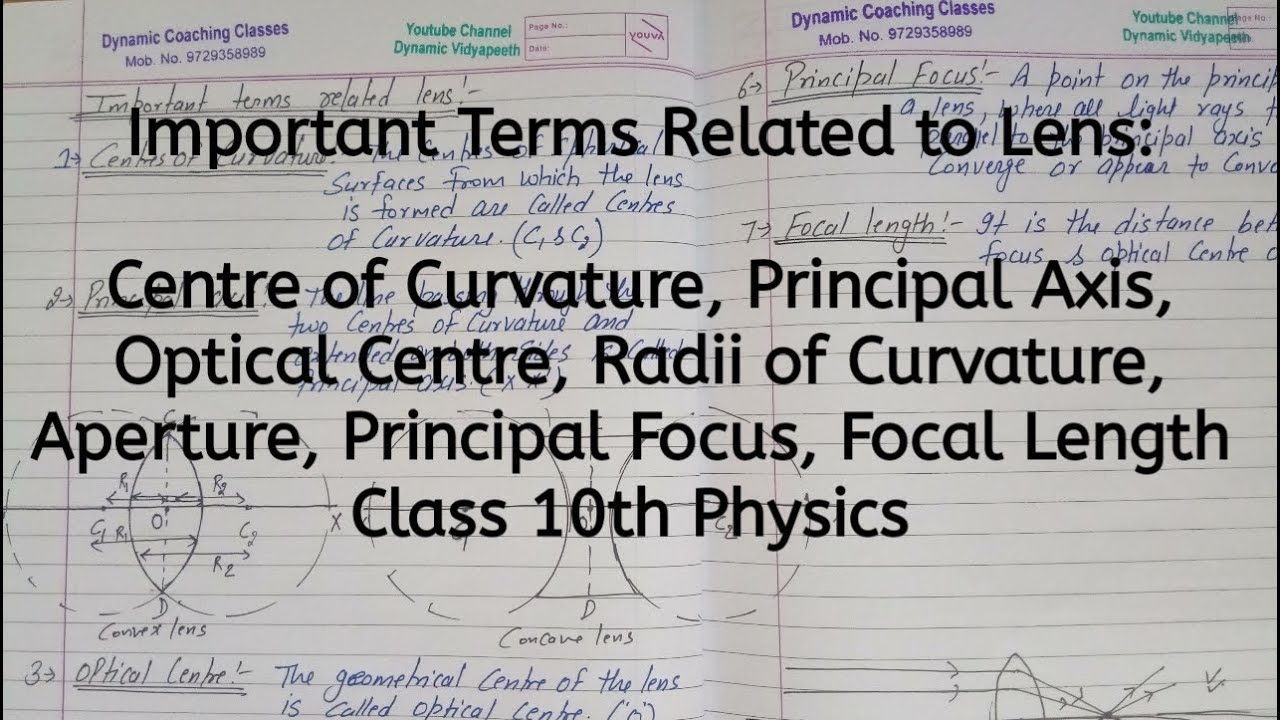 Dynamic Coaching Classes
Mob. No. 9729358989
Youtube Channel
Dynamic Vidyapeeth
Page No.:
Date:
YOUVA
Important terms related lens:-
Important Terms Related to Lens:
1→ Centres of Curvature:- The Centres of Spherical
Surfaces from which the lens
is formed are Called Centres
of Curvature. (C1 & C2)
2→ Principal
two Centres of Curvature and
Principal axis. (X X')
Centre of Curvature, Principal Axis,
Optical Centre, Radii of Curvature,
Aperture, Principal Focus, Focal Length
Class 10th Physics
R1 R2
C1 R1 O C2 X
R2
D
Convex lens
D
Concave lens
3→ Optical Centre:- The geometrical Centre of the lens
is Called optical Centre. ('O')
Dynamic Coaching Classes
Mob. No. 9729358989
Youtube Channel
Dynamic Vidyapeeth
6→ Principal Focus:- A point on the princip
a lens, where all light rays
parallel to principal axis
Converge or appear to Conve
7→ Focal length:- It is the distance bet
focus & optical Centre o